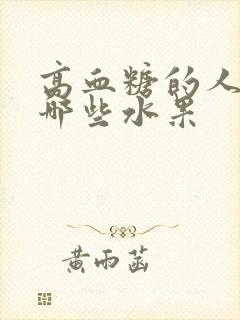 高血糖的人
哪些水果
黄雨菡